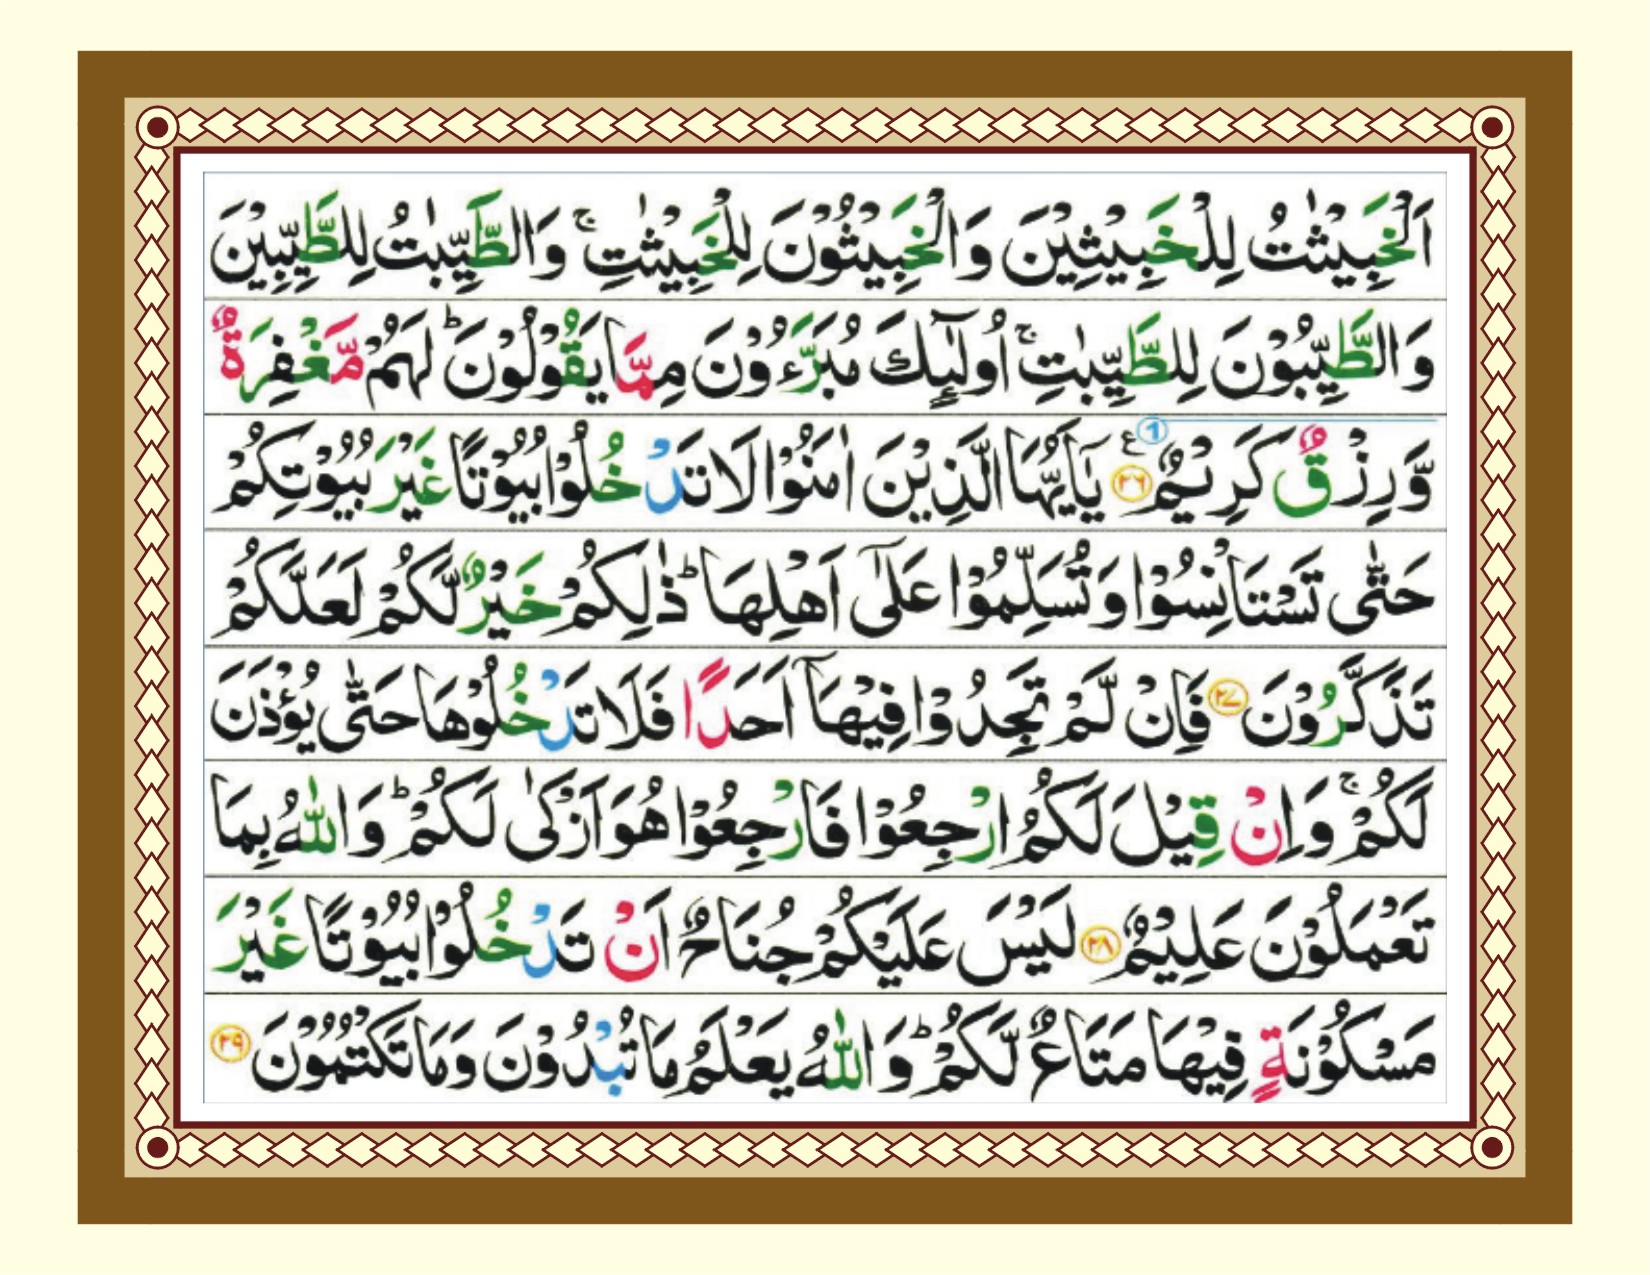 اَلْخَبِيْثٰتُ لِلْخَبِيْثِيْنَ وَالْخَبِيْثُوْنَ لِلْخَبِيْثٰتِ ۚ وَالطَّيِّبٰتُ لِلطَّيِّبِيْنَ
وَالطَّيِّبُوْنَ لِلطَّيِّبٰتِ ۚ اُولٰٓئِكَ مُبَرَّءُوْنَ مِمَّا يَقُوْلُوْنَ ؕ لَهُمْ مَّغْفِرَةٌ
وَّرِزْقٌ كَرِيْمٌ ﴿۲۶﴾ ع ① يٰۤاَيُّهَا الَّذِيْنَ اٰمَنُوْا لَا تَدْخُلُوْا بُيُوْتًا غَيْرَ بُيُوْتِكُمْ
حَتّٰى تَسْتَاْنِسُوْا وَتُسَلِّمُوْا عَلٰٓى اَهْلِهَا ؕ ذٰلِكُمْ خَيْرٌ لَّكُمْ لَعَلَّكُمْ
تَذَكَّرُوْنَ ﴿۲۷﴾ فَاِنْ لَّمْ تَجِدُوْا فِيْهَاۤ اَحَدًا فَلَا تَدْخُلُوْهَا حَتّٰى يُؤْذَنَ
لَكُمْ ۚ وَاِنْ قِيْلَ لَكُمُ ارْجِعُوْا فَارْجِعُوْا هُوَ اَزْكٰى لَكُمْ ؕ وَاللّٰهُ بِمَا
تَعْمَلُوْنَ عَلِيْمٌ ﴿۲۸﴾ لَيْسَ عَلَيْكُمْ جُنَاحٌ اَنْ تَدْخُلُوْا بُيُوْتًا غَيْرَ
مَسْكُوْنَةٍ فِيْهَا مَتَاعٌ لَّكُمْ ؕ وَاللّٰهُ يَعْلَمُ مَا تُبْدُوْنَ وَمَا تَكْتُمُوْنَ ﴿۲۹﴾